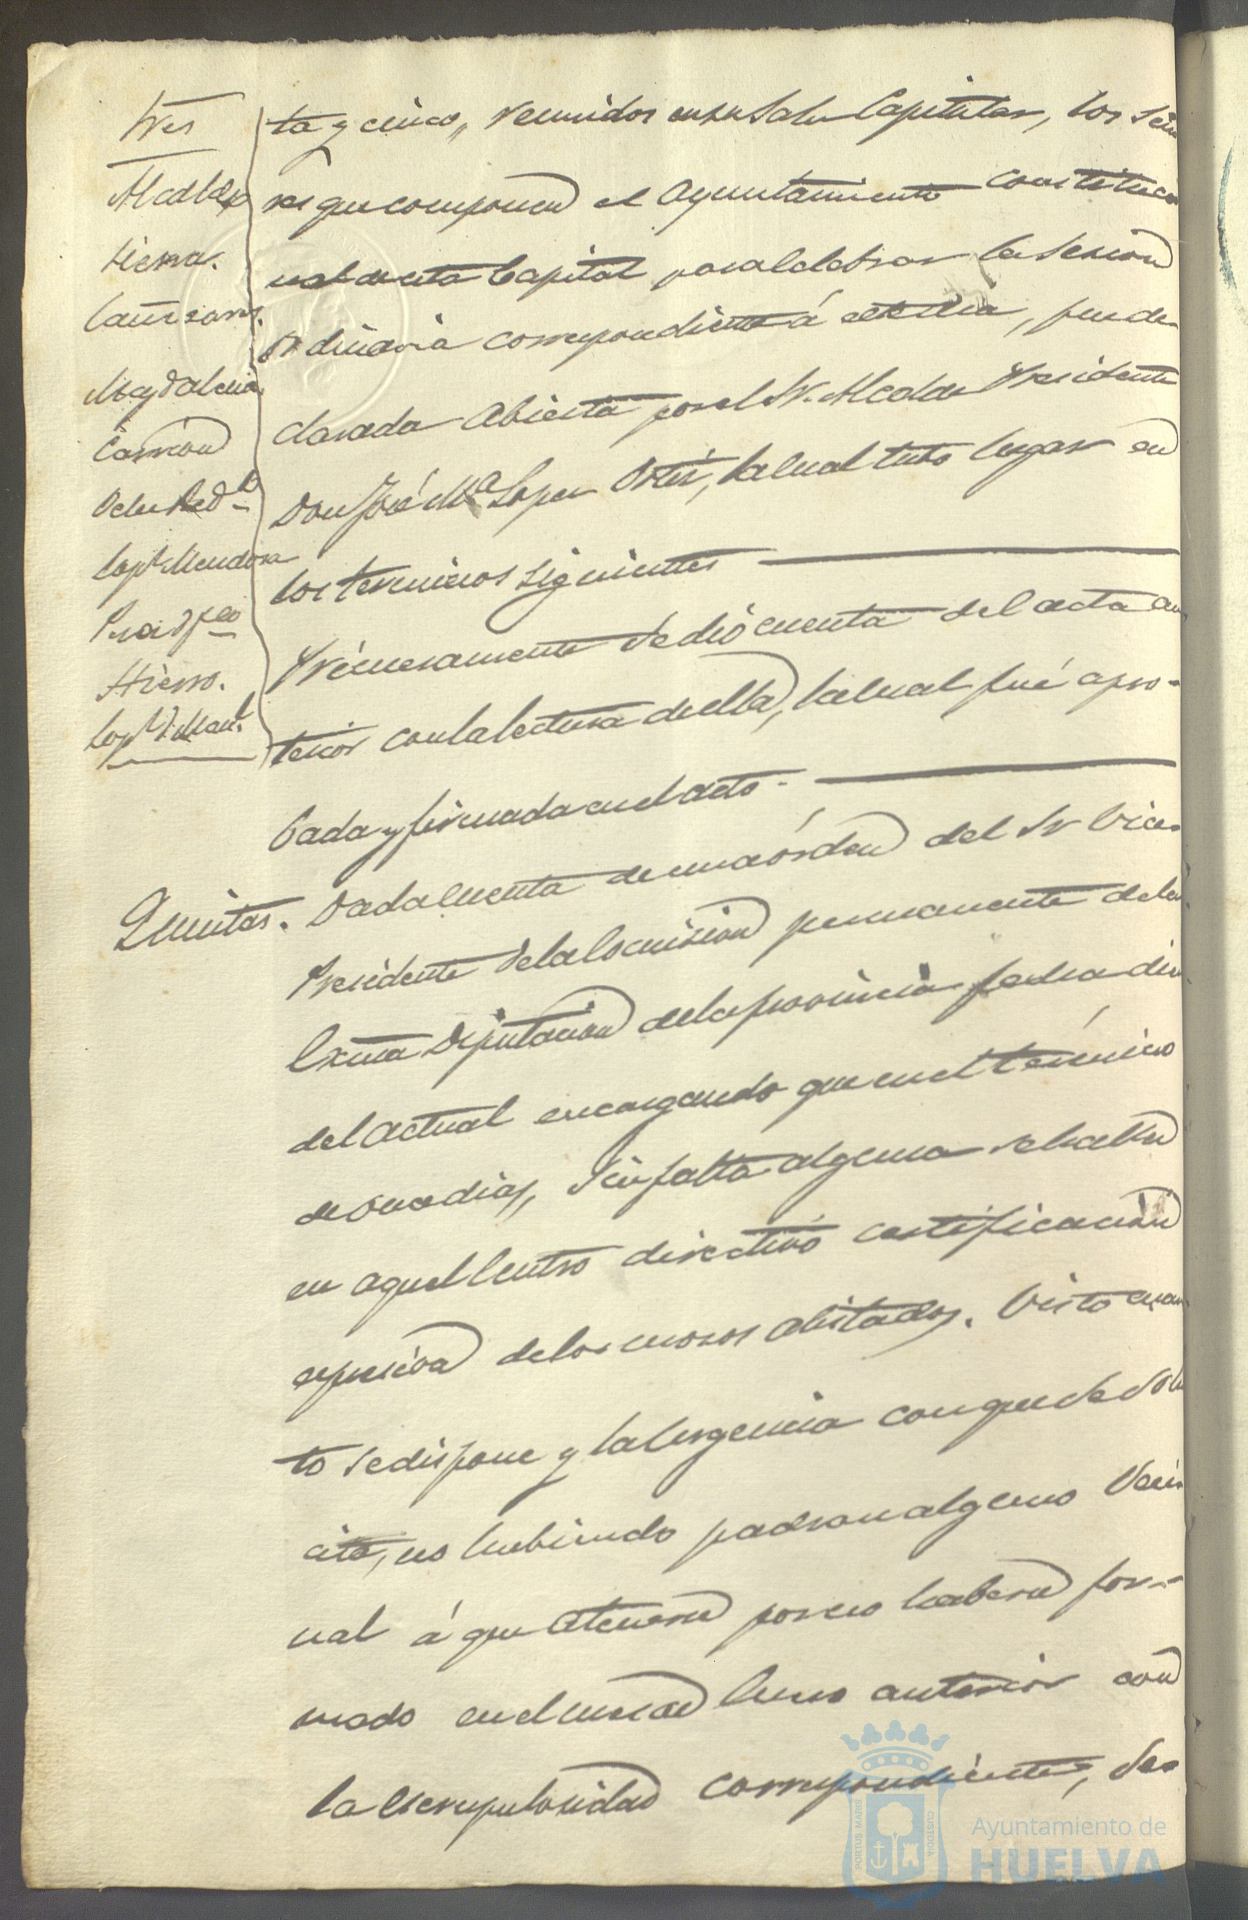 Sres
Alcalde
Sierra.
Cañizares.
Magdalena
Carrion
Lopz Mendoza
Hierro.
ta y cinco, reunidos en su Sala Capitular, los Seño
res que componen el Ayuntamiento constitucio
nal de esta Capital para celebrar la Sesion
ordinaria correspondiente á este dia, fue de-
clarada abierta por el Sr. Alcalde Presidente
Don José Ma Lopez Ortiz, la cual tuvo lugar en
los terminos siguientes
Primeramente se dió cuenta del acta an
terior con la lectura de ella, la cual fué apro-
bada y firmada en el acto.
Quintas. Dada cuenta de una órden del Sr Vice-
Presidente de la Comision permanente de la
Exma Diputacion de la provincia fecha
del actual encargando que en el término
de once dias, sin falta alguna se halle
en aquel Centro directivo certificacion
espresiva de los mozos alistados. Visto cuan
to se dispone y la urgencia con que se soli
cita, no habiendo padron alguno veci
nal á que atenerse por no haberse for-
mado en el mes de Enero anterior con
la escrupulosidad correspondiente, des
Ayuntamiento de
HUELVA
PORTUS MARIS
CUSTODIA